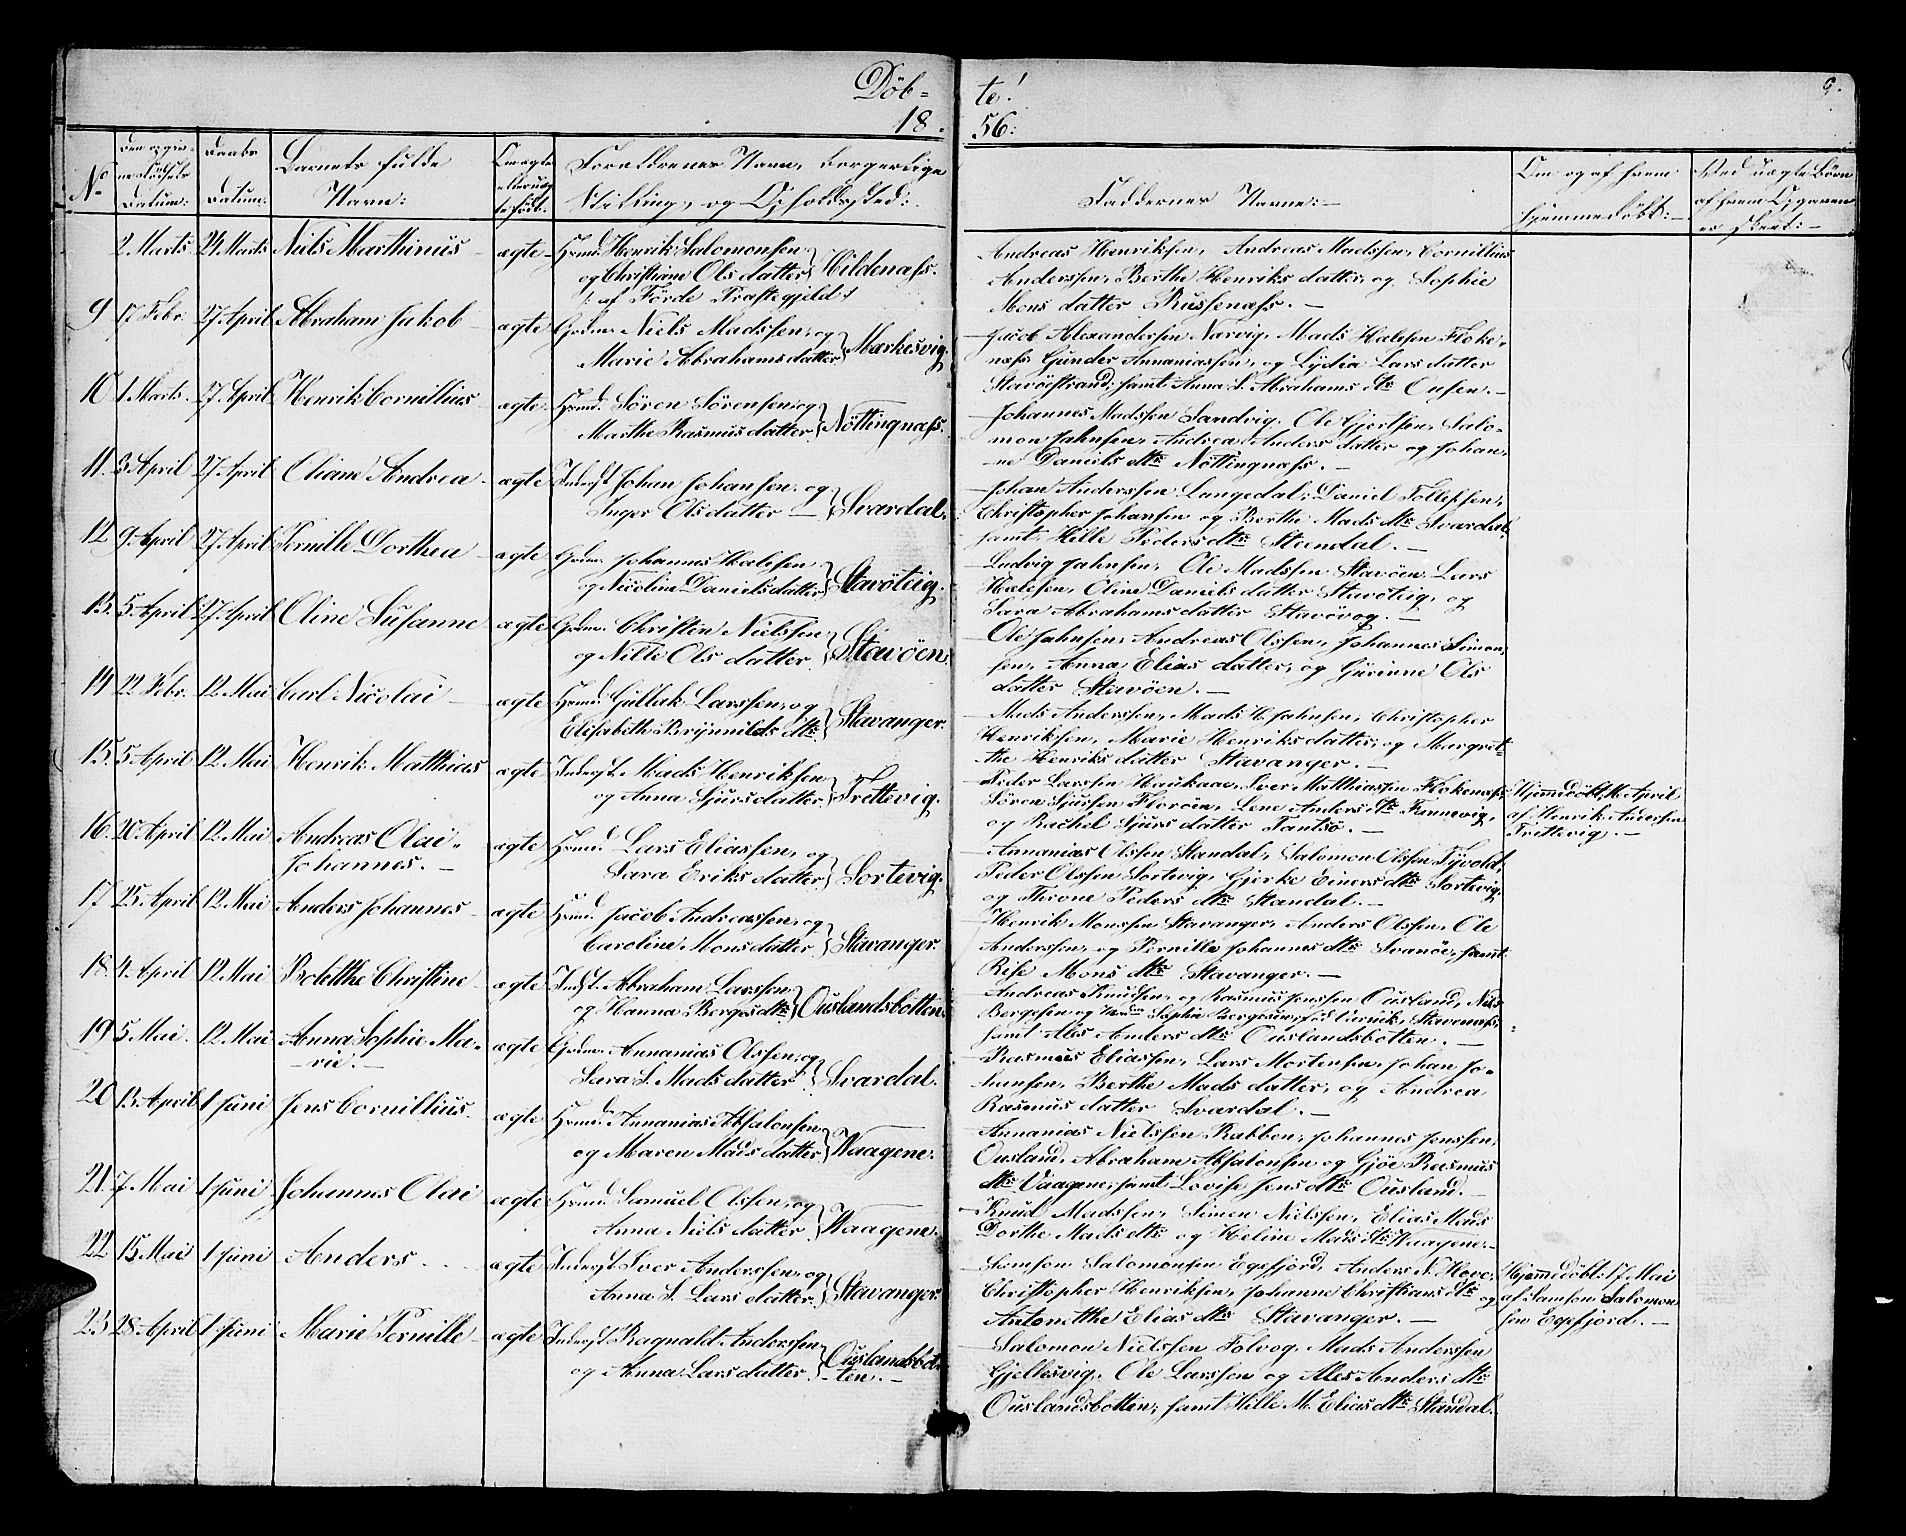 Döb-
te!
6.
18.
56:
No
Daabs Datum.
Barnets fulde Navn:
Forældrenes Navn, borgerlige Stilling, og Opholdssted:
Faddernes Navne:
Om og af hvem hjemmedöbt:
2 Marts 24 Marts Niels Marthinus ægte Hmd. Henrik Salomonsen og Christiane Ols datter Hildenæss. /: af Förde Præstegjeld :/
Andreas Henriksen, Andreas Madssen, Cornillius
Anderssen, Berthe Henriks datter, og Sophie
Mons datter Russenæss.
9 17 Febr. 27 April Abraham Jakob ægte Gdm. Niels Madssen, og Marie Abrahams datter Markesvig.
Jacob Alexandersen Nærvig, Mads Halvsen Floke-
næss, Gunder Annaniassen, og Lydia Lars datter
Stavöestrand, samt Anna S. Abrahams dtr Ousen.
10 1 Marts. 27 April Henrik Cornillius ægte Hmd. Sören Sörensen, og Marthe Rasmus datter Nöttingnæss.
Johannes Madssen Sandvig, Ole Gjertsen, Salo-
mon Jahnsen, Andrea Anders datter og Johan-
ne Daniels dtr Nöttingnæss.
11. 3 April 27 April Eliane Andrea ægte Inderst Johan Johansen, og Inger Ols datter Svardal.
Johan Anderssen Langedal, Daniel Tollefsen,
Christopher Johansen og Berthe Mads dtr Svardal,
samt Hille Peders dtr Standal.
12 9 April 27 April Pernille Dorthea ægte Gdm. Johannes Halvsen og Nicoline Daniels datter Stavöteig.
Ludvig Jahnsen, Ole Madssen Stavöen, Lars
Halvsen, Oline Daniels datter Stavöteig, og
Sara Abrahams datter Stavövog.
13. 5 April 27 April Oline Susanne ægte Gdm. Christen Nielssen, og Nille Ols datter Stavöen.
Ole Jahnsen, Andreas Olssen, Johannes Simon-
sen, Anna Elias datter, og Gurinne Ols
datter Stavöen.
14 22 Febr. 12 Mai Carl Nicolai ægte Hmd. Gullak Larssen, og Elisabeth Brynnilds dtr Stavanger.
Mads Anderssen, Mads H. Jahnsen, Christopher
Henriksen, Marie Henriks datter, og Margret-
the Henriks datter Stavanger.
15. 5 April 12 Mai Henrik Matthias ægte Inderst. Mads Henriksen og Anna Sjurs datter Trettevig.
Peder Larssen Haukaa, Iver Matthiassen Flokenæss,
Sören Sjurssen Floröen, Lene Anders dtr Finnevig,
og Rachel Sjurs datter Tantsö.
Hjemmedöbt 16 April af Henrik Andersen Trettevig.
16. 20 April 12 Mai Andreas Olai Johannes. ægte Hmd. Lars Eliassen, og Sara Eriks datter Sortevig.
Annanias Olssen Standal, Salomon Olssen Tyvold,
Peder Olssen Sortevig, Gjerke Einers dtr Sortevig
og Throne Peders dtr Standal.
17 25 April 12 Mai Anders Johannes ægte Hmd. Jacob Andreassen, og Caroline Mons datter Stavanger.
Henrik Monssen Stavanger, Anders Olssen, Ole
Anderssen, og Pernille Johannes dtr Svanöe, samt
Rise Mons dtr Stavanger.
18. 4 April 12 Mai Bolethe Christine ægte Indst. Abraham Larssen og Hanna Berges dtr Ouslandsbotten.
Andreas Knudsen, og Rasmus Jenssen Ousland, Nils
Bergesen og Sophie Stavenæss,
samt Ales Anders dtr Ouslandsbotten.
19 5 Mai. 12 Mai Anna Sophie Ma-rie. ægte Gdm. Annanias Olssen, og Sara S. Mads datter Svardal.
Rasmus Eliassen, Lars Mortensen, Johan Jo-
hansen, Berthe Mads datter, og Andrea
Rasmus datter Svardal.
20 13 April 1 Juni Jens Cornillius. ægte Hmd. Annanias Absalonsen og Maren Mads datter Waagene.
Annanias Nielssen Rabben, Johannes Jenssen,
Ousland, Abraham Absalonsen og Gjöe Rasmus
dtr Vaagene, samt Lovise Jens dtr Ousland.
21. 7 Mai 1 Juni Johannes Olai ægte Hmd. Samuel Olssen, og Anna Niels datter Waagene.
Knud Madssen, Simen Nielssen, Elias Mads
Dorthe Mads dtr og Heline Mads dtr Waagene.
22 15 Mai 1 Juni Anders ægte Inderst Iver Anderssen, og Anna S. Lars datter Stavanger.
Samson Salomonsen Egefjord, Anders N. Hove,
Christopher Henriksen, Johanne Christians dtr og
Antonetthe Elias dtr Stavanger.
Hjemmedöbt 17 Mai af Samson Salomonsen Egefjord.
23 28 April 1 Juni Marie Pernille ægte Inderst Ragnald Anderssen og Anna Lars datter Ouslandsbotten.
Salomon Nielssen Folvog, Mads Anderssen
Gjellesvig, Ole Larssen og Ales Anders dtr
Ouslandsbotten, samt Hille M. Elias dtr Standal.